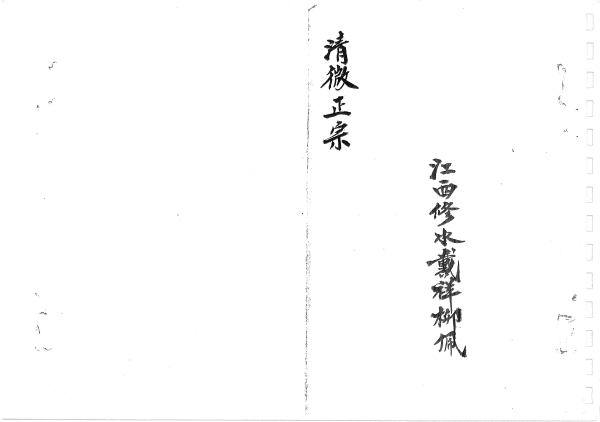 江西修水戴祥柳佩
清微正宗